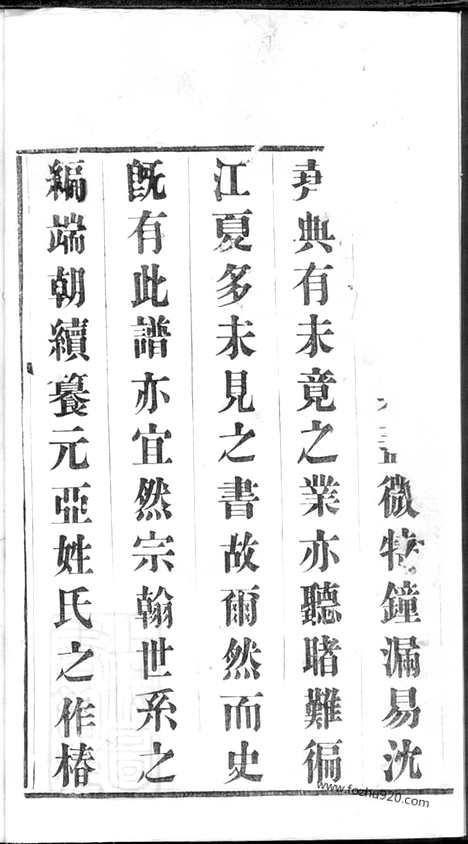 微特鐘漏易沈
典有未竟之業亦聽睹難徧
江夏多未見之書故爾然而史
既有此譜亦宜然宗翰世系之
編端朝續纂元亞姓氏之作椿
www.fozhu920.com